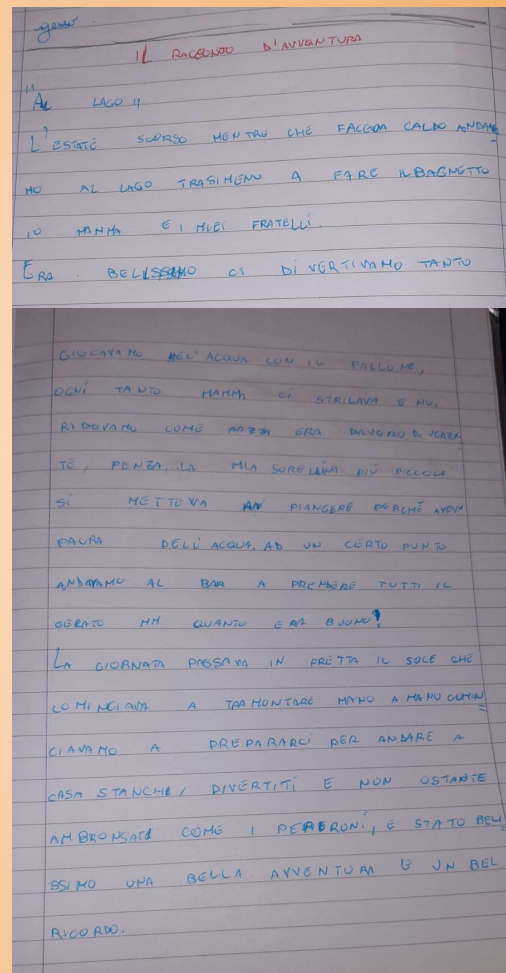 IL RACCONTO D'AVVENTURA
"AL LAGO"
L'ESTATE SCORSO MENTRE CHE FACEVA CALDO ANDAVA
MO AL LAGO TRASIMENO A FARE IL BAGNETTO
IO MAMMA E I MIEI FRATELLI.
ERA BELISSIMO CI DIVERTIVAMO TANTO
GIOCAVAMO NELL'ACQUA CON IL PALLONE,
OGNI TANTO MAMMA CI STRILAVA E NOI
RIDOVAMO COME PAZZI ERA DAVVERO
TE, PENZA, LA MIA SORELLINA PIÙ PICCOLA
SI METTEVA A PIANGERE PERCHÈ AVEVA
PAURA DELL'ACQUA. AD UN CERTO PUNTO
ANDAVAMO AL BAR A PRENDERE TUTTI IL
GERATO MH QUANTO ERA BUONO!
LA GIORNATA PASSAVA IN FRETTA IL SOLE CHE
COMINCIAVA A TRAMONTARE MANO A MANO COMIN
CIAVAMO A PREPARARCI PER ANDARE A
CASA STANCHI, DIVERTITI E NON OSTANTE
AMBRONSATI COME I PEPERONI, E STATO BELI
SSIMO UNA BELLA AVVENTURA E UN BEL
RICORDO.